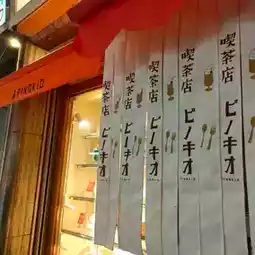 PINOKIO
喫茶店 ピノキオ
喫茶店 ピノキオ
喫茶店 ピノキオ
喫茶店 ピノキオ
喫茶店 ピノキオ